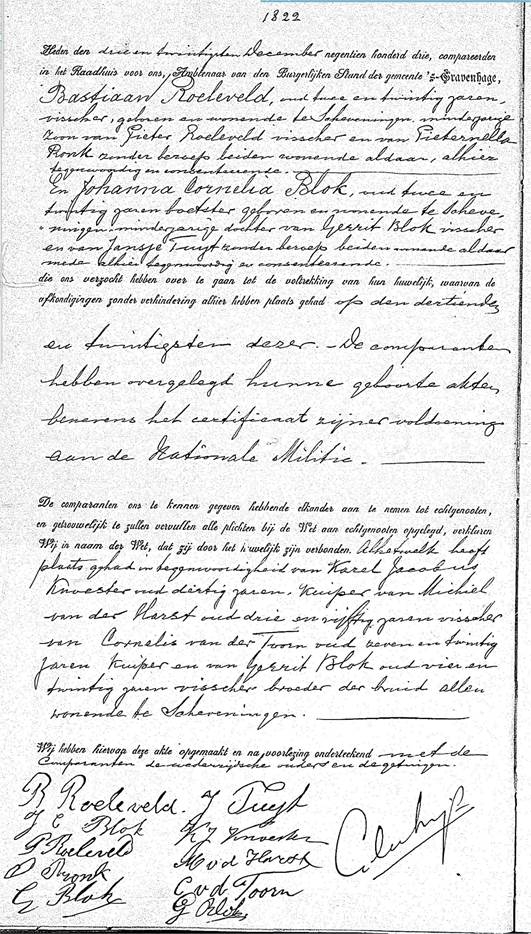 1822
Heden den drie en twintigsten December negentien honderd drie, compareerden
in het Raadhuis voor ons, Ambtenaar van den Burgerlijken Stand der gemeente 's-Gravenhage,
Bastiaan Roeleveld, oud twee en twintig jaren,
visscher, geboren en wonende te Scheveningen, minderjarige
zoon van Pieter Roeleveld visscher en van Pieternella
Pronk zonder beroep beiden wonende aldaar, alhier
tegenwoordig en consenteerende.
En Johanna Cornelia Blok, oud twee en
twintig jaren boetster geboren en wonende te Scheve
ningen, minderjarige dochter van Gerrit Blok visscher
en van Jansje Tuijt zonder beroep beiden wonende aldaar
mede alhier tegenwoordig en consenteerende.
die ons verzocht hebben over te gaan tot de voltrekking van hun huwelijk, waarvan de
afkondigingen zonder verhindering alhier hebben plaats gehad op den dertienden
en twintigsten dezer. - De comparanten
hebben overgelegd hunne geboorte akten
benevens het certificaat zijner voldoening
aan de Nationale Militie.
De comparanten ons te kennen gegeven hebbende elkander aan te nemen tot echtgenooten,
en getrouwelijk te zullen vervullen alle plichten bij de Wet aan echtgenooten opgelegd, verklaren
Wij in naam der Wet, dat zij door het huwelijk zijn verbonden. Alhetwelk heeft
plaats gehad in tegenwoordigheid van Karel Jacobus
Knoester oud dertig jaren, kuiper van Michiel
van der Harst oud drie en vijftig jaren visscher
van Cornelis van der Toorn oud zeven en twintig
jaren kuiper en van Gerrit Blok oud vier en
twintig jaren visscher broeder der bruid allen
wonende te Scheveningen.
Wij hebben hiervan deze akte opgemaakt en na voorlezing onderteekend met de
Comparanten de wederzijdsche ouders en de getuigen.
B Roeleveld. J Tuijt
J C Blok K J Knoester
P Roeleveld M v d Harst
P Pronk C v d Toorn
G Blok G Blok